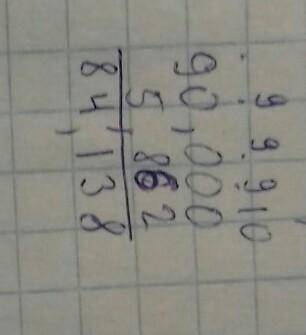 9 9 9 10
90,000
5,862
84,138